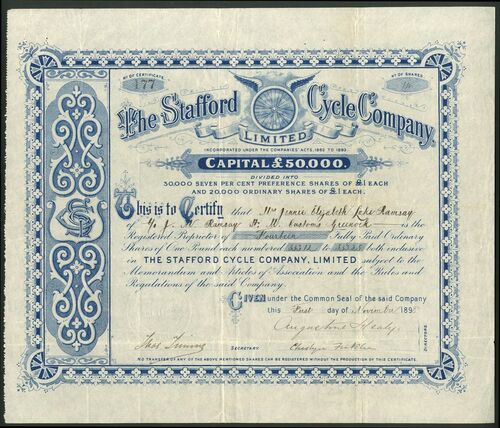 No OF CERTIFICATE
177
No OF SHARES
14
The Stafford Cycle Company,
LIMITED
INCORPORATED UNDER THE COMPANIES' ACTS, 1862 TO 1893.
CAPITAL £50,000.
DIVIDED INTO
30,000 SEVEN PER CENT PREFERENCE SHARES OF £1 EACH
AND 20,000 ORDINARY SHARES OF £1 EACH.
This is to Certify that Mrs Jennie Elizabeth Ramsay
of Ramsay Customs Greenock is the
Registered Proprietor of Fourteen Fully Paid Ordinary
Shares of One Pound each numbered to both inclusive
in THE STAFFORD CYCLE COMPANY, LIMITED subject to the
Memorandum and Articles of Association and the Rules and
Regulations of the said Company.
GIVEN under the Common Seal of the said Company
this First day of November 189
Augustine Healy
DIRECTORS.
SECRETARY
NO TRANSFER OF ANY OF THE ABOVE MENTIONED SHARES CAN BE REGISTERED WITHOUT THE PRODUCTION OF THIS CERTIFICATE.